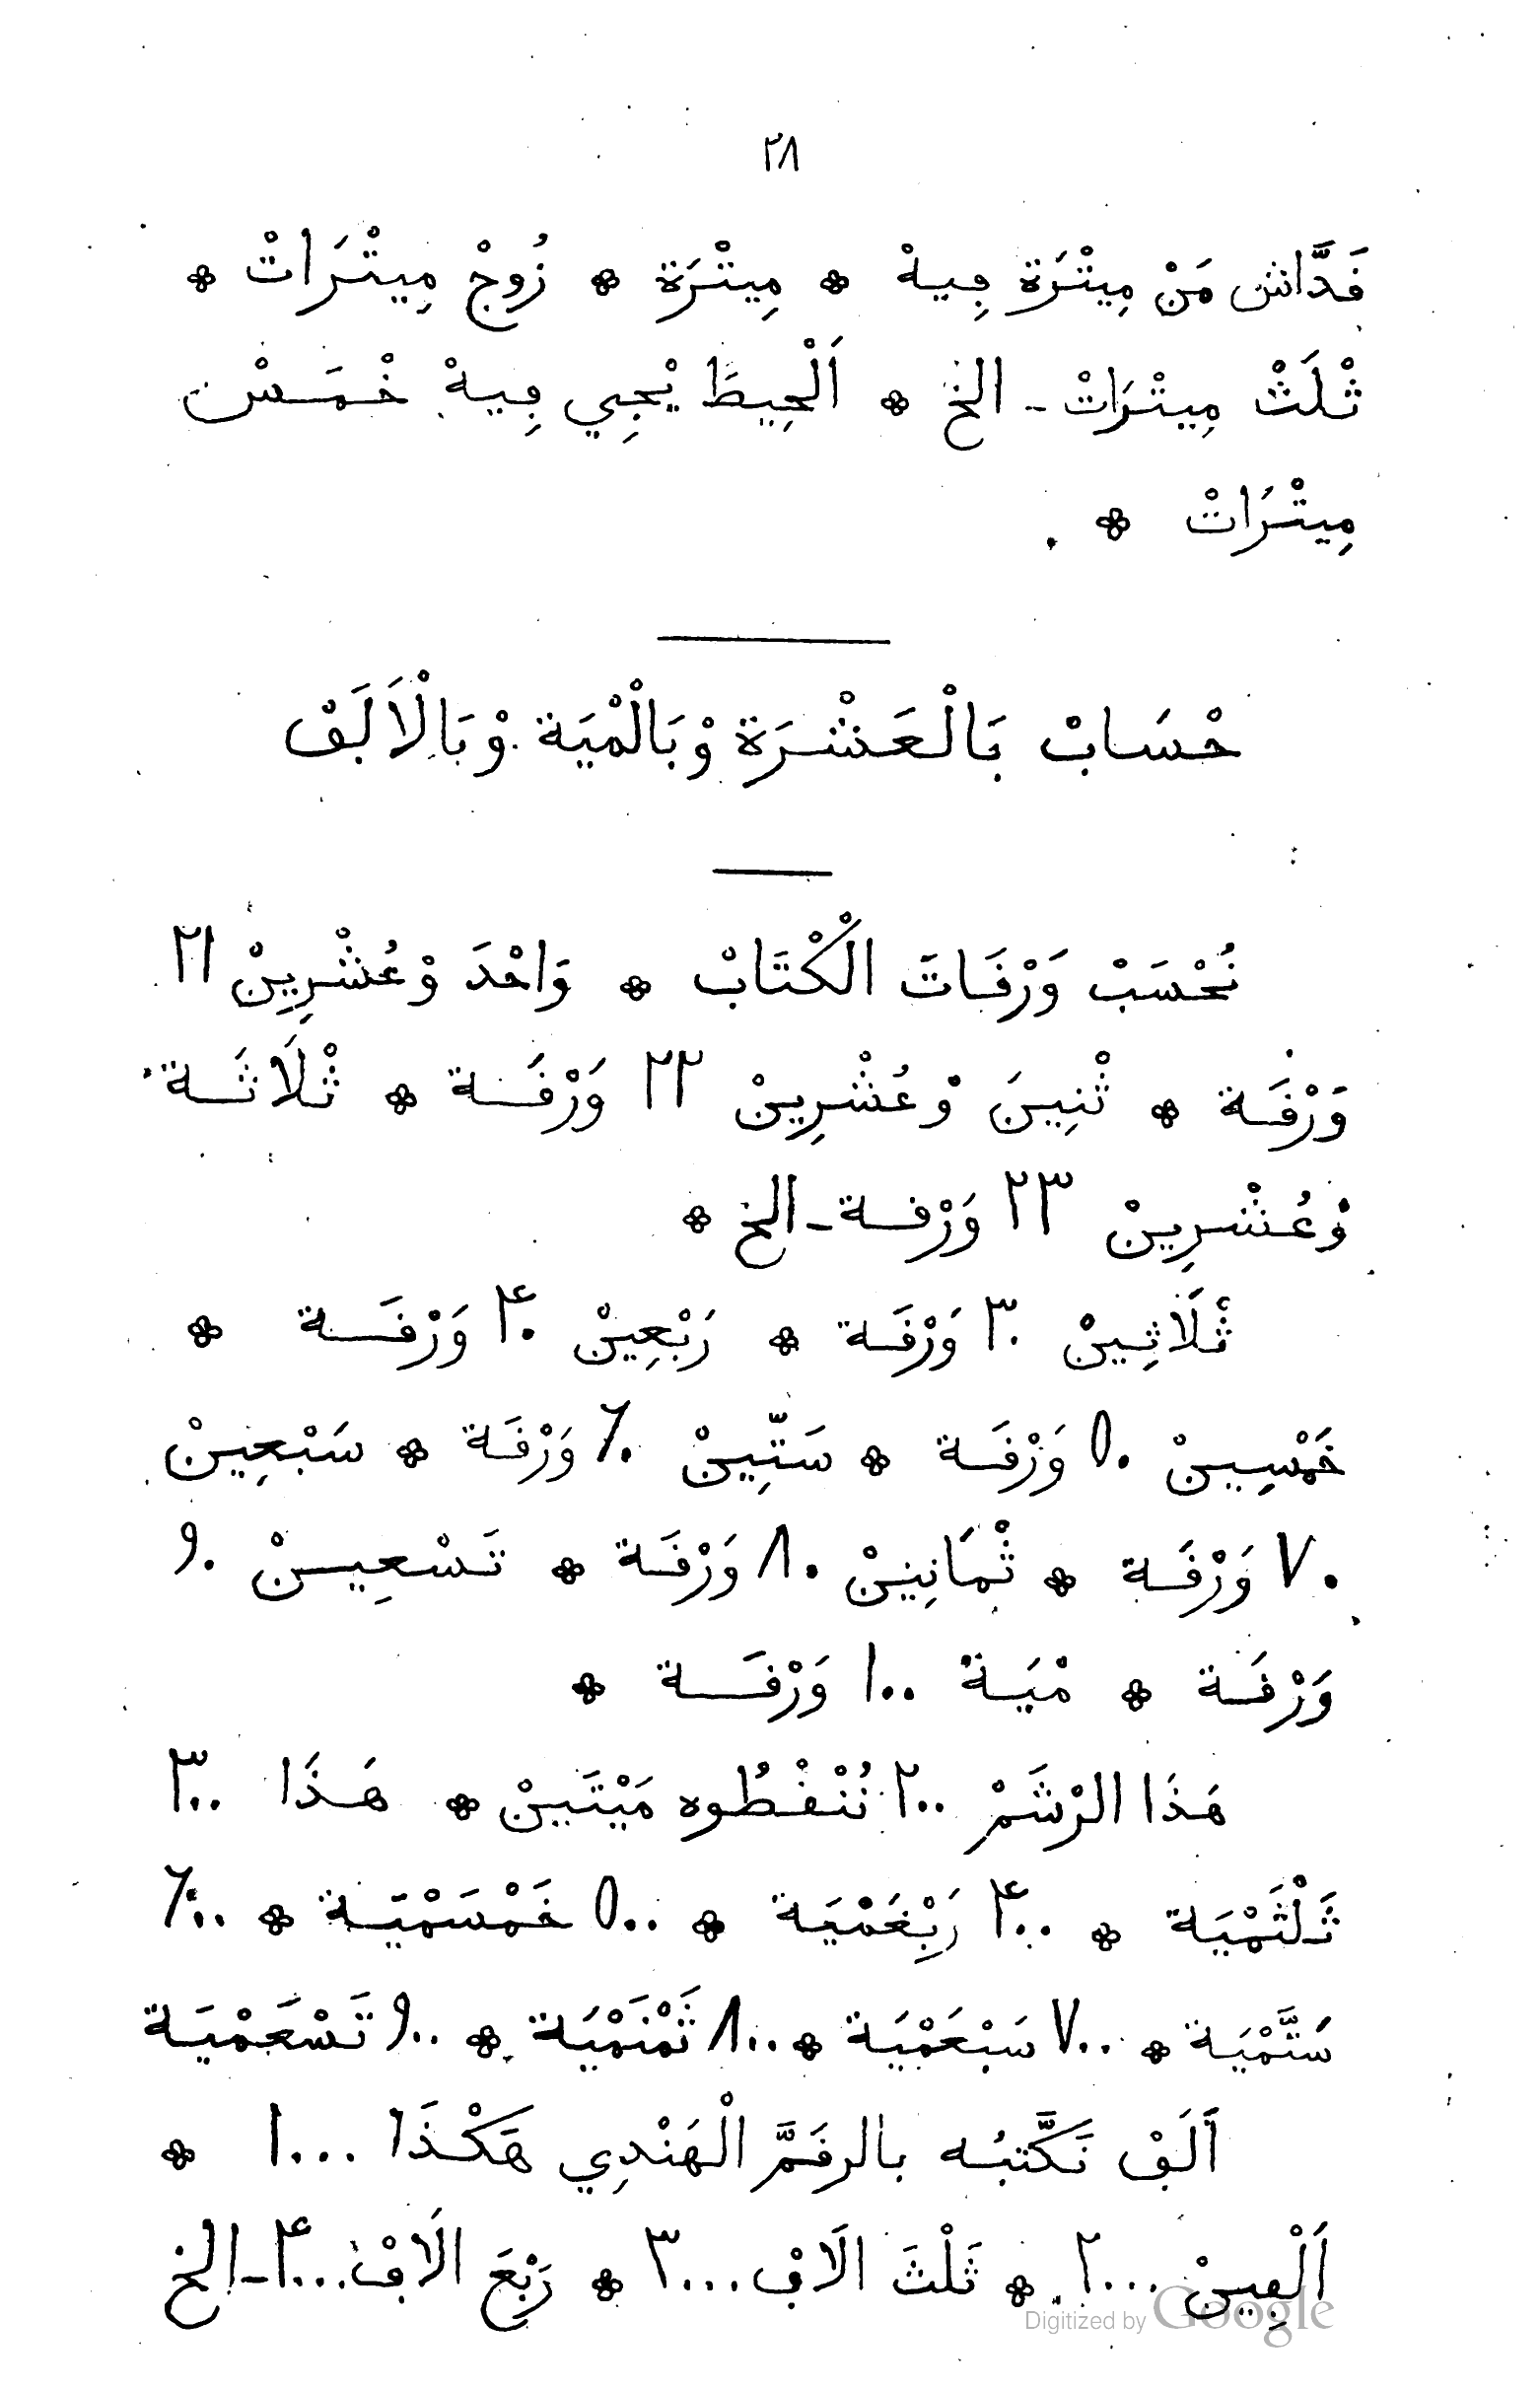 ٢٨
ڧَدَّاش مَنْ مِيتْرَة ڢِيهْ * مِيتْرَة * زُوجْ مِيتْرَاتْ *
ثْلَثْ مِيتْرَاتْ ـ الخ * اَلْحِيطَ يْجِي ڢِيهْ خْمَسْ
مِيتْرَاتْ *
حْسَابْ بَالْعَشْرَة وْبَالْمْيَة وْبَالْاَلَڢْ
نَحْسَبْ وَرْڧَاتَ الْكْتَابْ * وَاحْدَ وْعُشْرِينْ ٢١
وَرْڧَة * ثْنِينَ وْعُشْرِينْ ٢٢ وَرْڧَة * ثْلَاثَة
وْعُشْرِينْ ٢٣ وَرْڧة ـ الخ *
ثَلَاثِينْ ٣٠ وَرْڧَة * رَبْعِينْ ۴٠ وَرْڧَة *
خَمْسِينْ ٥٠ وَرْڧَة * سَتِّينْ ٦٠ وَرْڧَة * سَبْعِينْ
٧٠ وَرْڧَة * ثْمَانِينْ ٨٠ وَرْڧَة * تَسْعِينْ ٩٠
وَرْڧَة * مْيَة ١٠٠ وَرْڧَة *
هَذَا الرْشَمْ ٢٠٠ نُنْڧْطُوه مَيْتَينْ * هَذَا ٣٠٠
ثَلْثَمْيَة * ۴٠٠ رَبْعَمْيَة * ٥٠٠ خَمْسَمْيَة * ٦٠٠
سَتَّمْيَة * ٧٠٠ سَبْعَمْيَة * ٨٠٠ ثَمْنَمْيَة * ٩٠٠ تَسْعَمْيَة
اَلَڢْ نَكَّتبُه بالرڧَمَّ الْهَنْدِي هَكْذَا ١٠٠٠ *
اَلْڢِينْ ٢٠٠٠ * ثَلْثَ الَاڢْ ٣٠٠٠ * رَبْعَ الَاڢْ ۴٠٠٠ ـ الخ
Digitized by Google